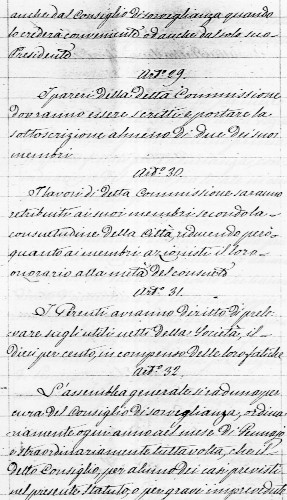 anche dal Consiglio di sorveglianza quando
lo crederà conveniente od anche dal solo suo
Presidente
Art.º 29.
I pareri della detta Commissione
dovranno essere scritti e portare la
sottoscrizione almeno di due dei suoi
membri
Art.º 30.
I lavori di detta Commissione saranno
retribuiti ai suoi membri secondo la
consuetudine della Città, riducendo però
quanto ai membri azionisti il loro
onorario alla metà del consueto
Art.º 31.
I Gerenti avranno diritto di prele-
vare sugli utili netti della Società, il
dieci per cento, in compenso delle loro fatiche
Art.º 32.
L'assemblea generale si raduna per
cura del Consiglio di sorveglianza, ordina-
riamente ogni anno nel mese di Giugno
e straordinariamente tutta volta, che il
detto Consiglio, per alcuno dei casi previsti
nel presente Statuto, o per gravi imprevedute